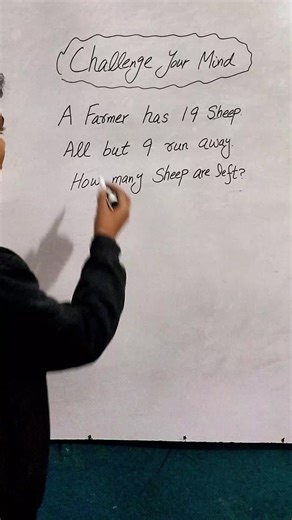 Challenge Your Mind
A Farmer has 19 Sheep.
All but 9 run away.
How many Sheep are left?